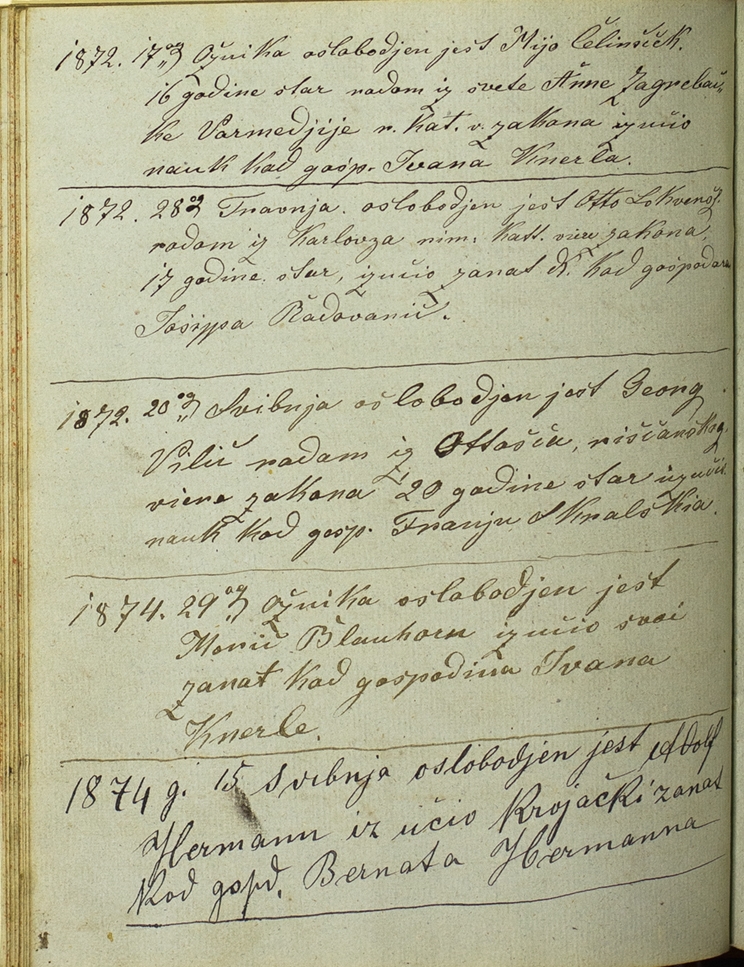 1872. 17og Ožuika oslobodjen jest Mijo Čelinšček.
16 godine star rodom iz svete Anne Zagrebač„
ke Varmedjije r. kat. v. zakona izučio
nauk kod gosp. Ivana Knerla.
1872. 28og Travnja. oslobodjen jest Otto
rodom iz Karlovza rim. Katt. viere zakona,
17 godine star, izučio zanat kod gospodara
Josippa Radovanić.
1872. 20og Svibnja oslobodjen jest Georg
Vilić rodom iz Ottočca, rišćanskog
viere zakona 20 godine star izučio
nauk kod gosp. Franju Skralskia.
1874. 29og Ožuika oslobodjen jest
Moric Blauhorn izučio svoi
zanat kod gospodina Ivana
Knerle.
1874 g. 15 Svibnja oslobodjen jest Adolf
Hermann iz učio Krojački zanat
Kod gospd. Bernata Hermanna